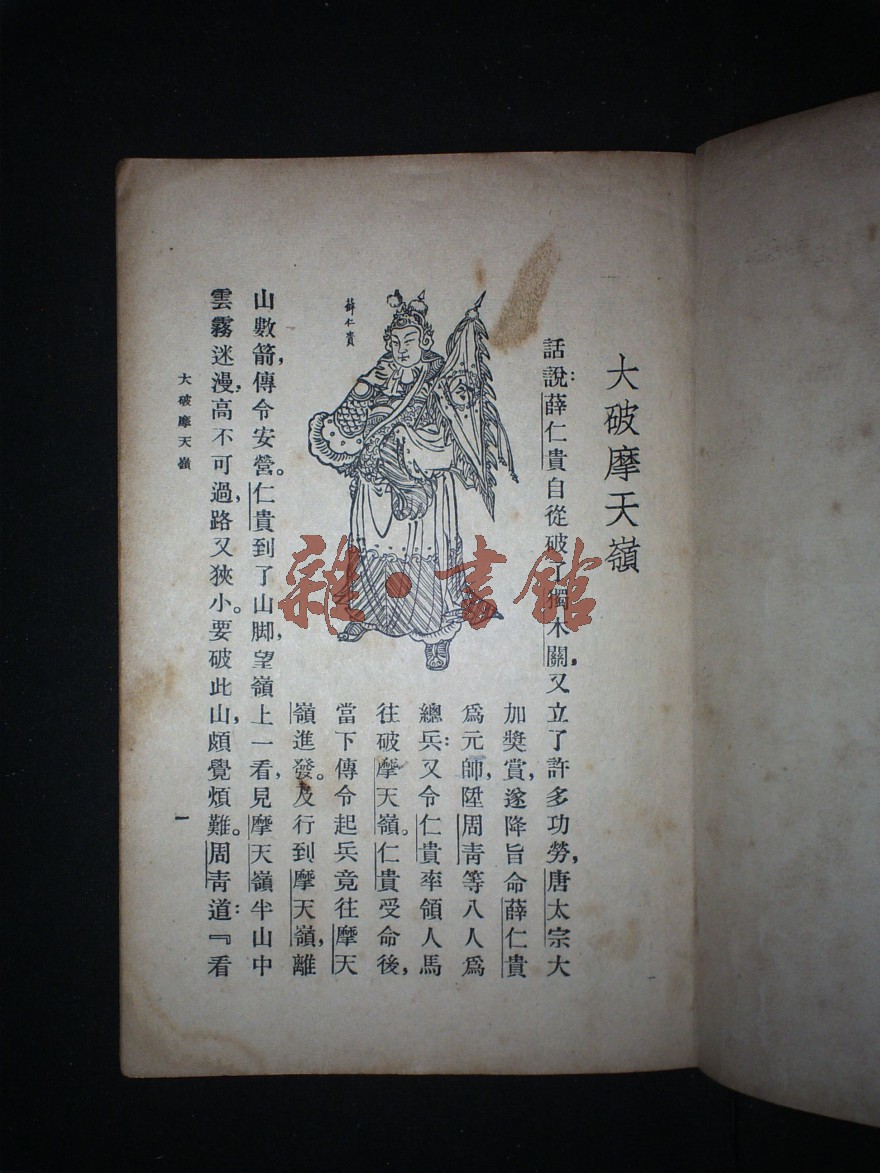 大破摩天嶺
話說：薛仁貴自從破了獨木關，又立了許多功勞，唐太宗大
加獎賞，遂降旨命薛仁貴
爲元帥，陞周靑等八人爲
總兵：又令仁貴率領人馬
往破摩天嶺。仁貴受命後，
當下傳令起兵竟往摩天
嶺進發。及行到摩天嶺，離
薛仁貴
山數箭，傳令安營。仁貴到了山脚，望嶺上一看，見摩天嶺半山中
雲霧迷漫，高不可過，路又狹小。要破此山，頗覺煩難。周靑道：『看
大破摩天嶺
一
雜·書館